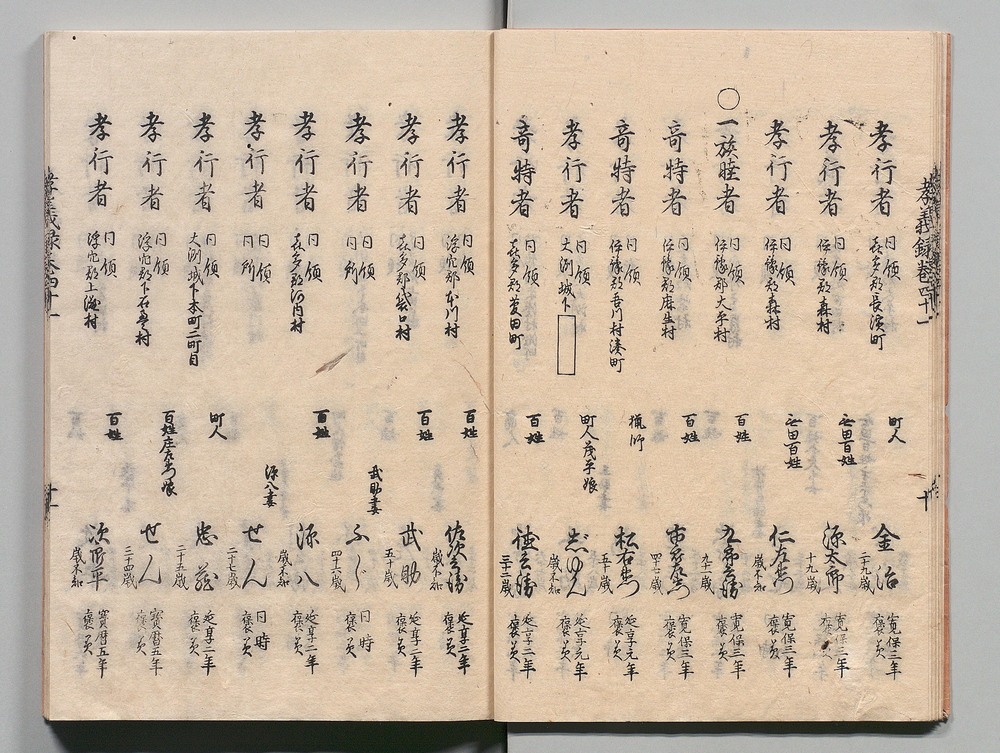 孝義録巻四十一
孝行者 同領 喜多郡長濱町 町人 金治 二十九歳 寛保三年 褒美
孝行者 同領 伊豫郡森村 無田百姓 源太郎 十九歳 寛保三年 褒美
孝行者 同領 伊豫郡森村 無田百姓 仁左衛門 歳不知 寛保三年 褒美
○一族睦者 同領 伊豫郡大平村 百姓 九郎兵衛 九十一歳 寛保三年 褒美
奇特者 同領 伊豫郡麻生村 百姓 市左衛門 寛保三年 褒美
奇特者 同領 伊豫郡吾川村湊町 猟師 松右衛門 五十歳 延享元年 褒美
孝行者 同領 大洲城下 町人茂平娘 歳不知 延享元年 褒美
奇特者 同領 喜多郡 田町 百姓 徳兵衛 三十二歳 延享二年 褒美
孝行者 同領 浮穴郡 川村 百姓 佐次兵衛 歳不知 延享二年 褒美
孝行者 同領 喜多郡 口村 百姓 武助 五十歳 延享二年 褒美
孝行者 同領 同所 武助妻 ふじ 四十六歳 同時 褒美
孝行者 同領 喜多郡河内村 百姓 源八 歳不知 延享二年 褒美
孝行者 同領 同所 源八妻 せん 二十七歳 同時 褒美
孝行者 同領 大洲城下本町二町目 町人 忠蔵 二十五歳 延享二年 褒美
孝行者 同領 浮穴郡下石畳村 百姓庄左衛門娘 せん 三十四歳 寳暦五年 褒美
孝行者 同領 浮穴郡上 村 百姓 次郎平 歳不知 寳暦五年 褒美
孝義録巻四十一